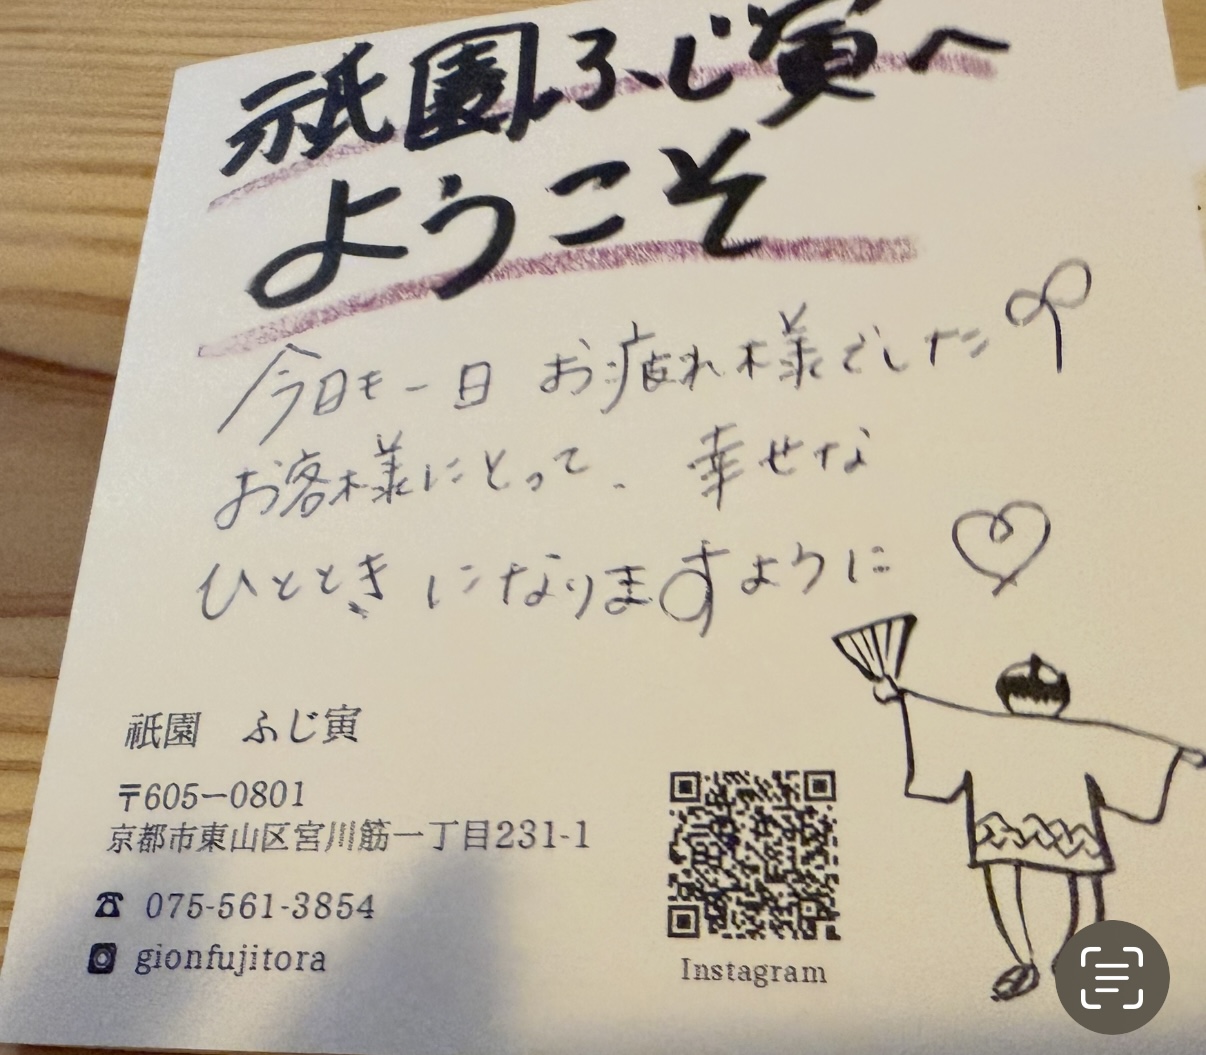 祇園ふじ寅へ
ようこそ
今日も一日お疲れ様でした
お客様にとって、幸せな
ひとときになりますように
祇園　ふじ寅
〒605ー0801
京都市東山区宮川筋一丁目231-1
☎ 075-561-3854
gionfujitora
Instagram